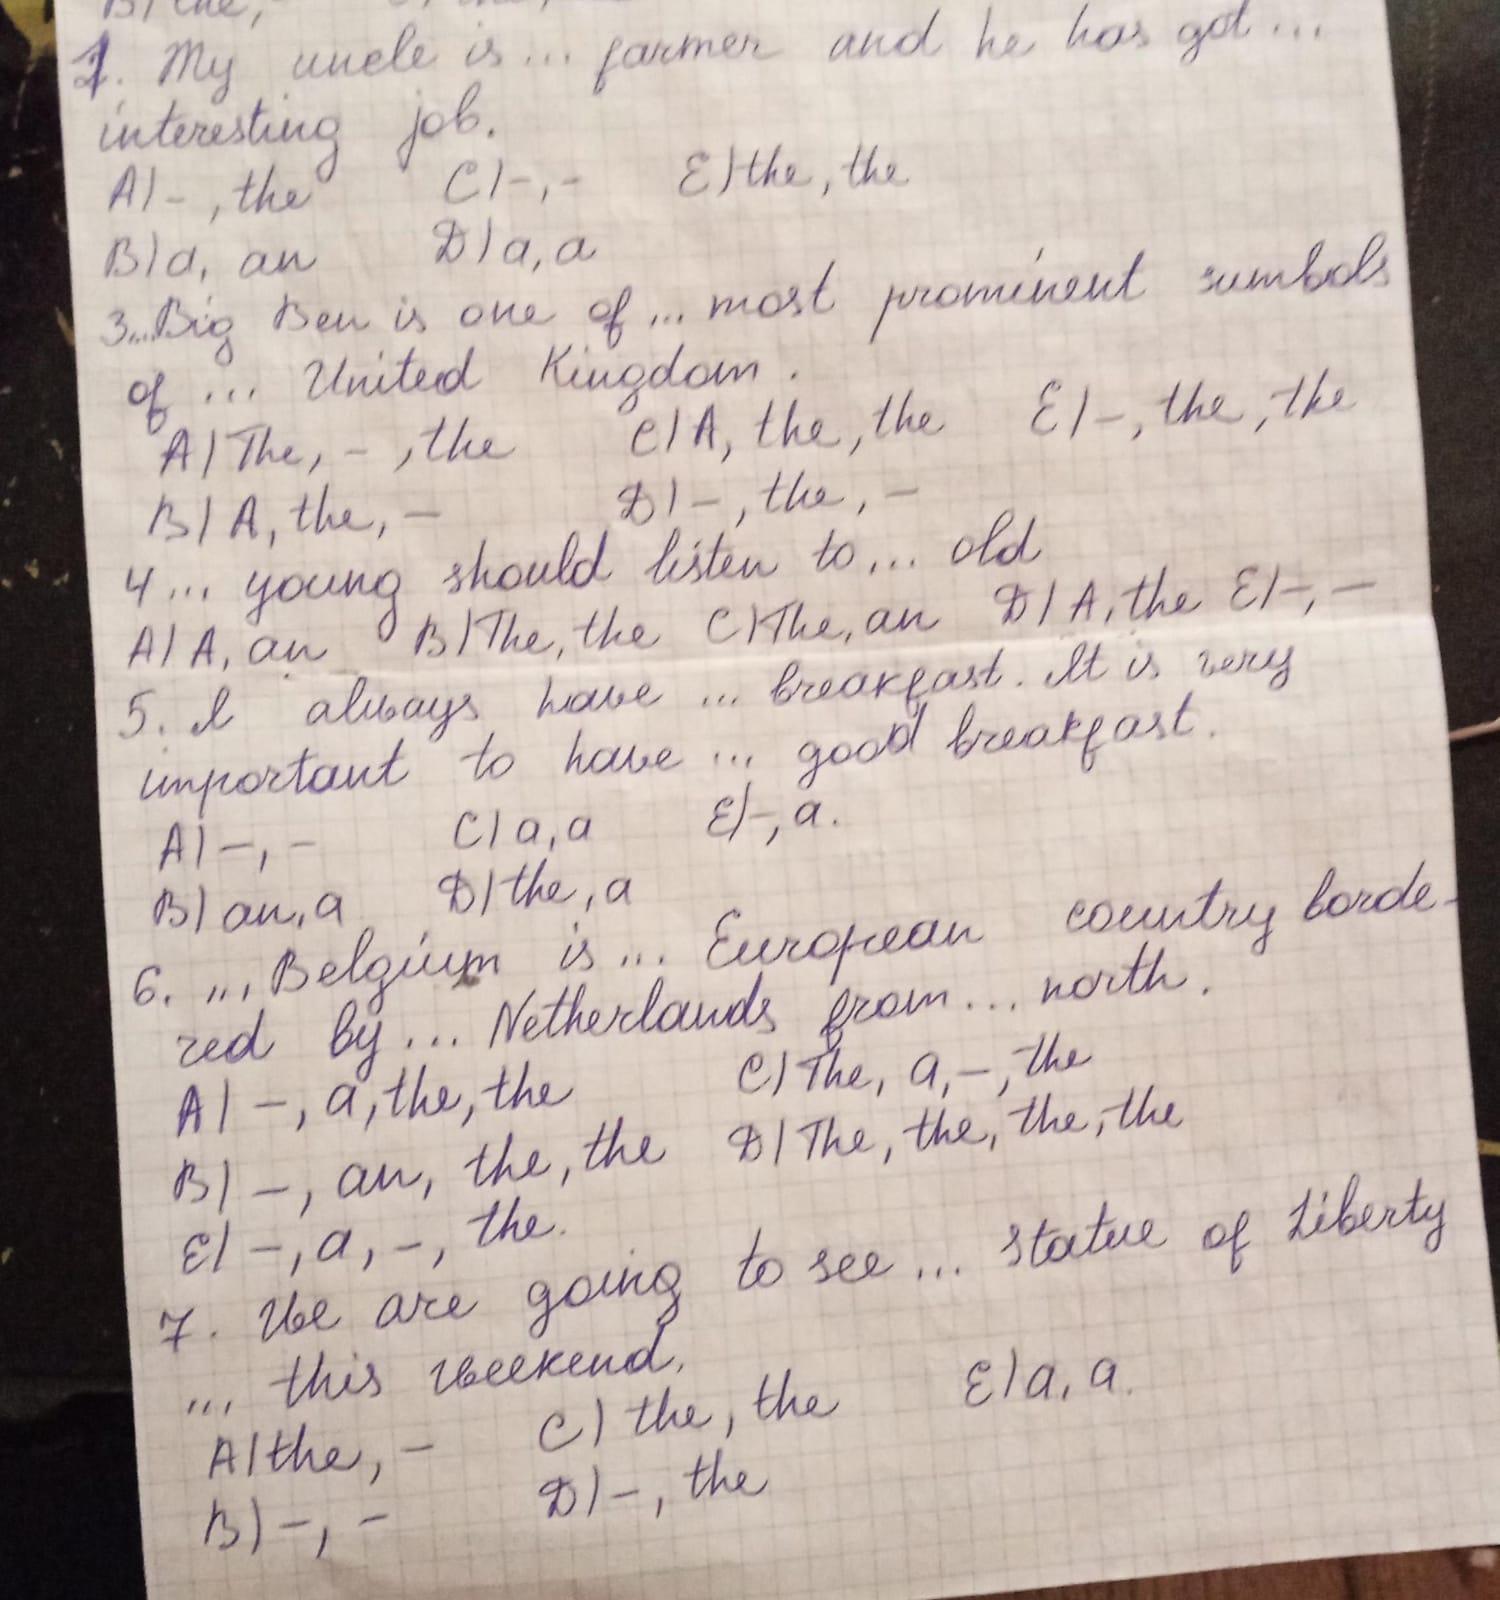 1. My uncle is ... farmer and he has got ...
interesting job.
A) -, the C) -, - E) the, the
B) a, an D) a, a
3...Big Ben is one of ... most prominent sumbols
of ... United Kingdom.
A) The, -, the C) A, the, the E) -, the, the
B) A, the, - D) -, the, -
4 ... young should listen to ... old
A) A, an B) The, the C) The, an D) A, the E) -, -
5. I always have ... breakfast. It is very
important to have ... good breakfast.
A) -, - C) a, a E) -, a.
B) an, a D) the, a
6. ... Belgium is ... European country borde-
red by ... Netherlands from ... north.
A) -, a, the, the C) The, a, -, the
B) -, an, the, the D) The, the, the, the
E) -, a, -, the.
7. We are going to see ... statue of Liberty
... this weekend.
A) the, - C) the, the E) a, a.
B) -, - D) -, the